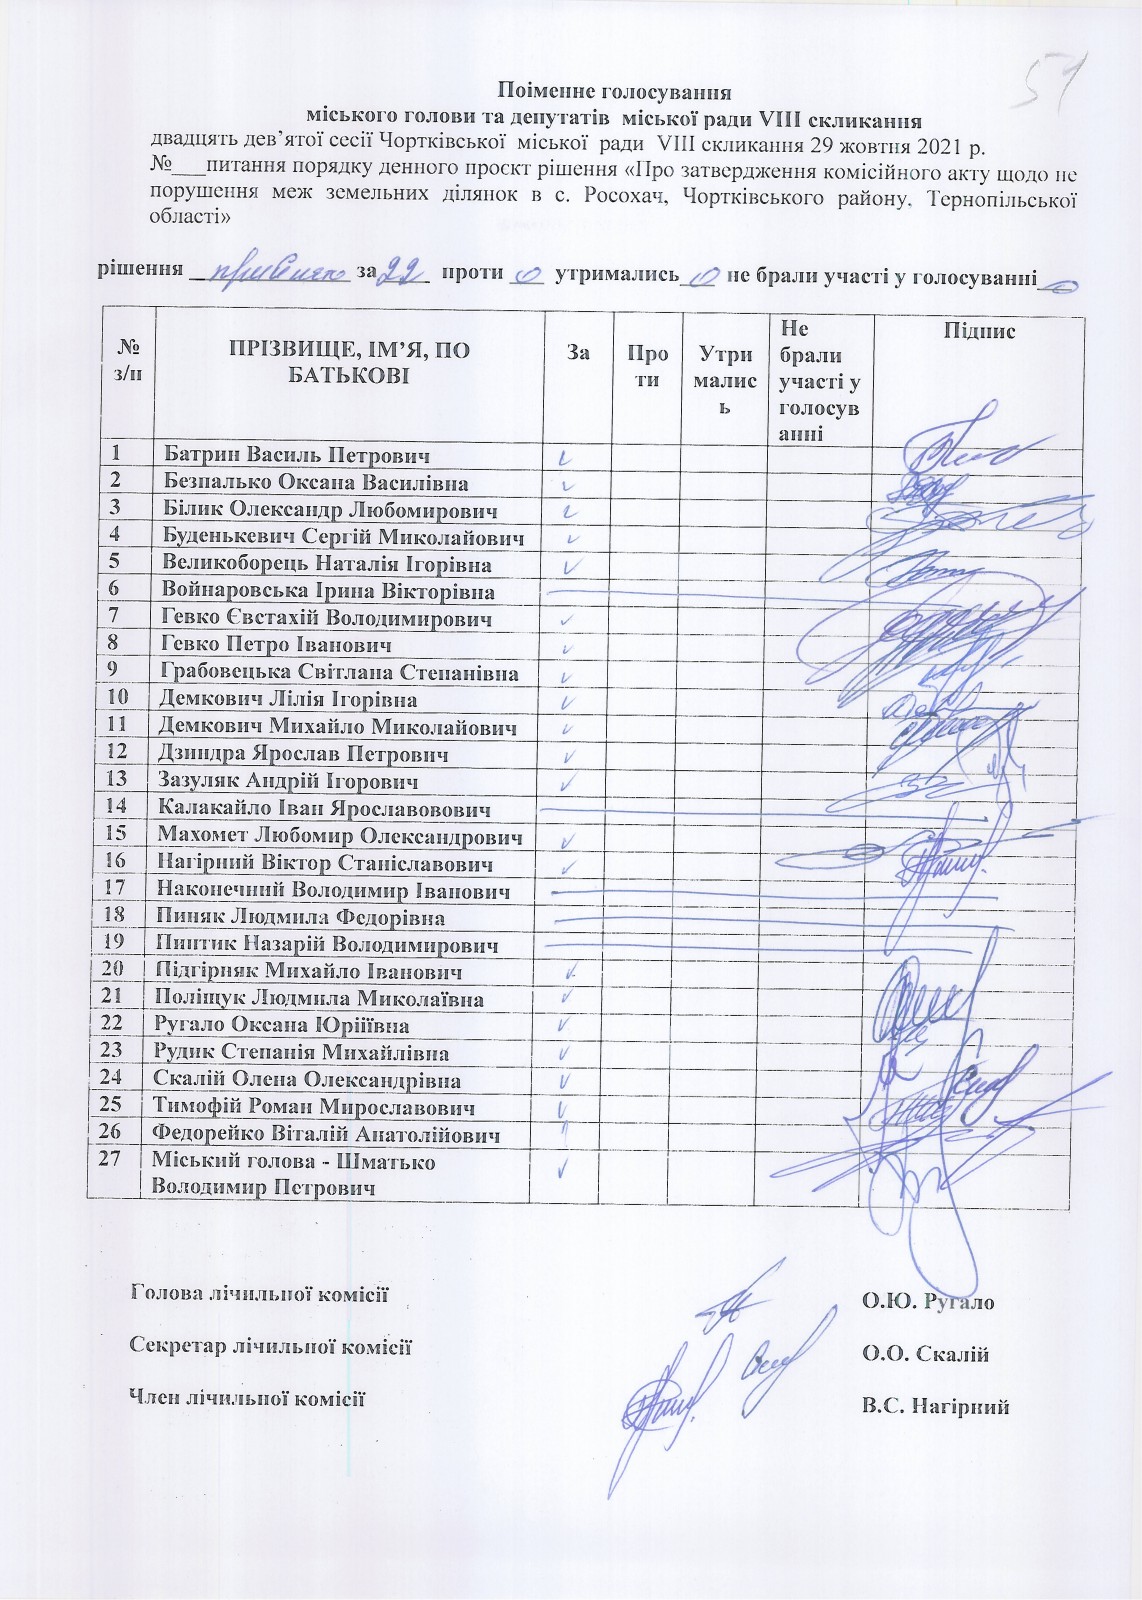 51
Поіменне голосування
міського голови та депутатів міської ради VIII скликання
двадцять дев’ятої сесії Чортківської міської ради VIII скликання 29 жовтня 2021 р.
№___питання порядку денного проєкт рішення «Про затвердження комісійного акту щодо не
порушення меж земельних ділянок в с. Росохач, Чортківського району, Тернопільської
області»
рішення прийнято за 22 проти 0 утримались 0 не брали участі у голосуванні 0
№ з/п ПРІЗВИЩЕ, ІМ’Я, ПО БАТЬКОВІ За Про ти Утри малис ь Не брали участі у голосув анні Підпис
1 Батрин Василь Петрович
2 Безпалько Оксана Василівна
3 Білик Олександр Любомирович
4 Буденькевич Сергій Миколайович
5 Великоборець Наталія Ігорівна
6 Войнаровська Ірина Вікторівна
7 Гевко Євстахій Володимирович
8 Гевко Петро Іванович
9 Грабовецька Світлана Степанівна
10 Демкович Лілія Ігорівна
11 Демкович Михайло Миколайович
12 Дзиндра Ярослав Петрович
13 Зазуляк Андрій Ігорович
14 Калакайло Іван Ярославовович
15 Махомет Любомир Олександрович
16 Нагірний Віктор Станіславович
17 Наконечний Володимир Іванович
18 Пиняк Людмила Федорівна
19 Пинтик Назарій Володимирович
20 Підгірняк Михайло Іванович
21 Поліщук Людмила Миколаївна
22 Ругало Оксана Юріїївна
23 Рудик Степанія Михайлівна
24 Скалій Олена Олександрівна
25 Тимофій Роман Мирославович
26 Федорейко Віталій Анатолійович
27 Міський голова - Шматько
Володимир Петрович
Голова лічильної комісії О.Ю. Ругало
Секретар лічильної комісії О.О. Скалій
Член лічильної комісії В.С. Нагірний